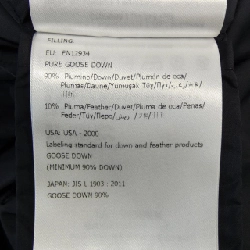 FILLING
EU: EN12934
PURE GOOSE DOWN
90% Piumino/Down/Duvet/Plumón de oca/
Plumas/Daune/Yumuşak Tüy/
10% Piuma/Feather/Duvet/Pluma de oca/Penas/
Feder/Tüy/Перо/
USA: USA - 2000
Labeling standard for down and feather products
GOOSE DOWN
(MINIMUM 90% DOWN)
JAPAN: JIS L 1903 : 2011
GOOSE DOWN 90%